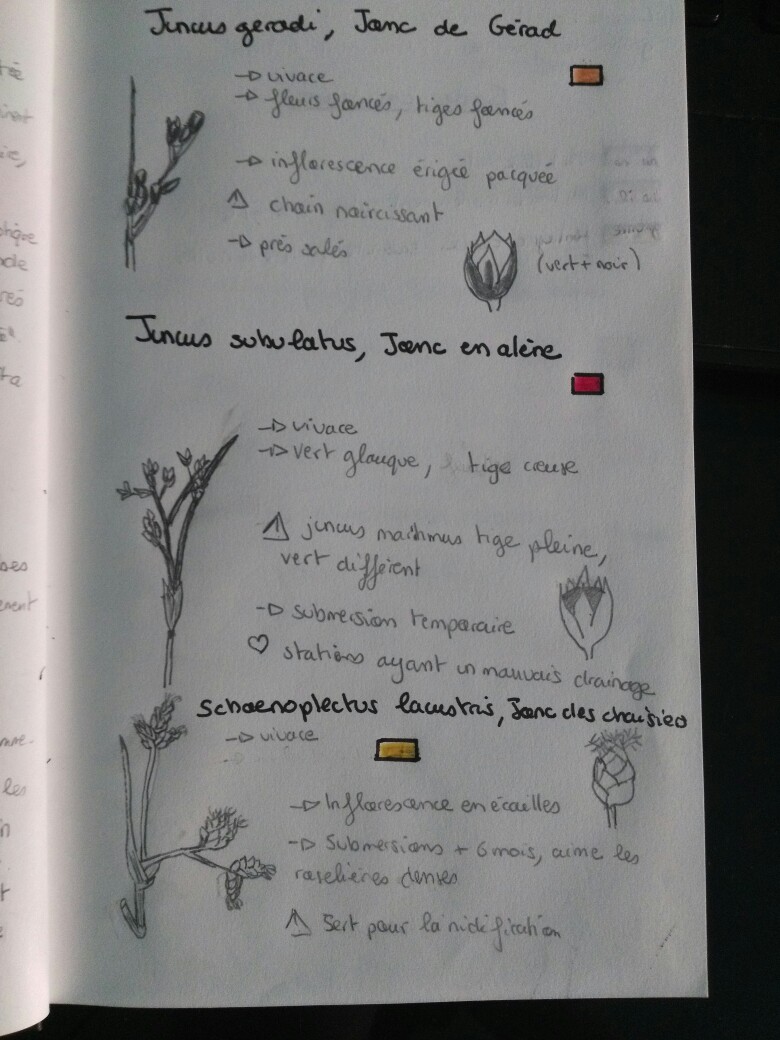 Juncus geradi, Jonc de Gérad
→ vivace
→ fleurs foncés, tiges foncés
→ inflorescence érigée pacquée
⚠ chain noircissant
→ prés salés
(vert + noir)
Juncus subulatus, Jonc en alène
→ vivace
→ vert glauque, tige creuse
⚠ juncus maritimus tige pleine,
vert différent
→ submersion temporaire
♡ stations ayant un mauvais drainage
Schoenoplectus lacustris, Jonc des chaisiers
→ vivace
→ Inflorescence en écailles
→ Submersions + 6 mois, aime les
roselières denses
⚠ Sert pour la nidification